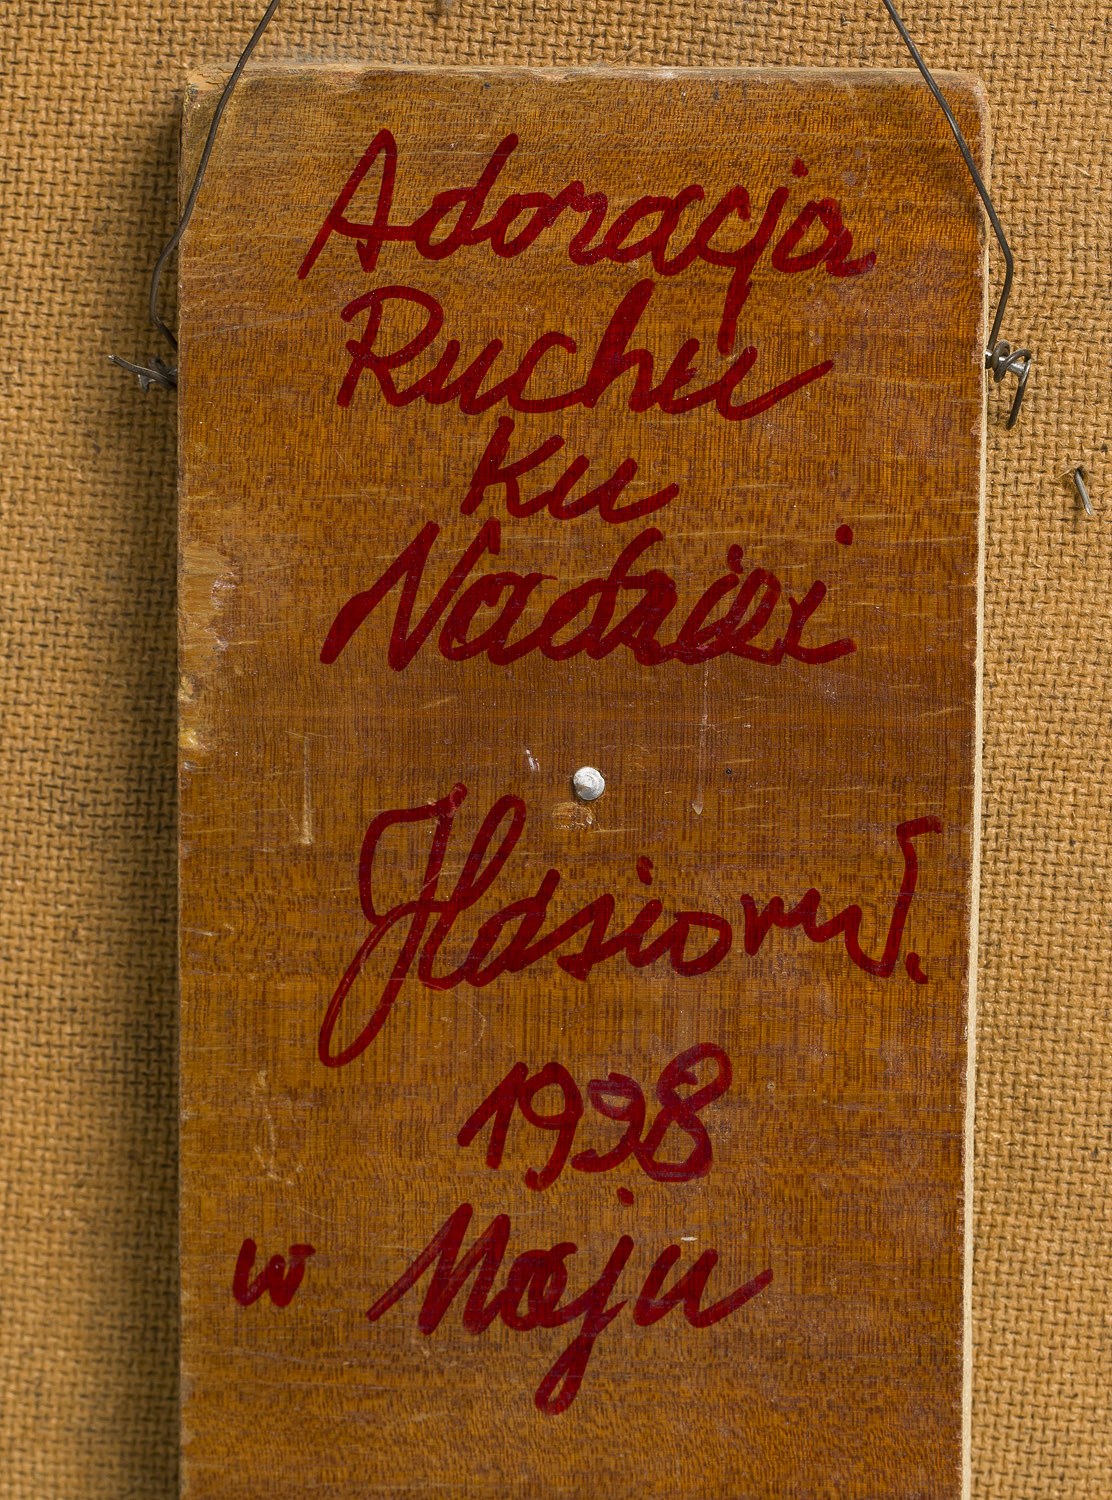 Adoracja
Ruchu
ku
Nadziei
Hasior W.
1998
w Maju